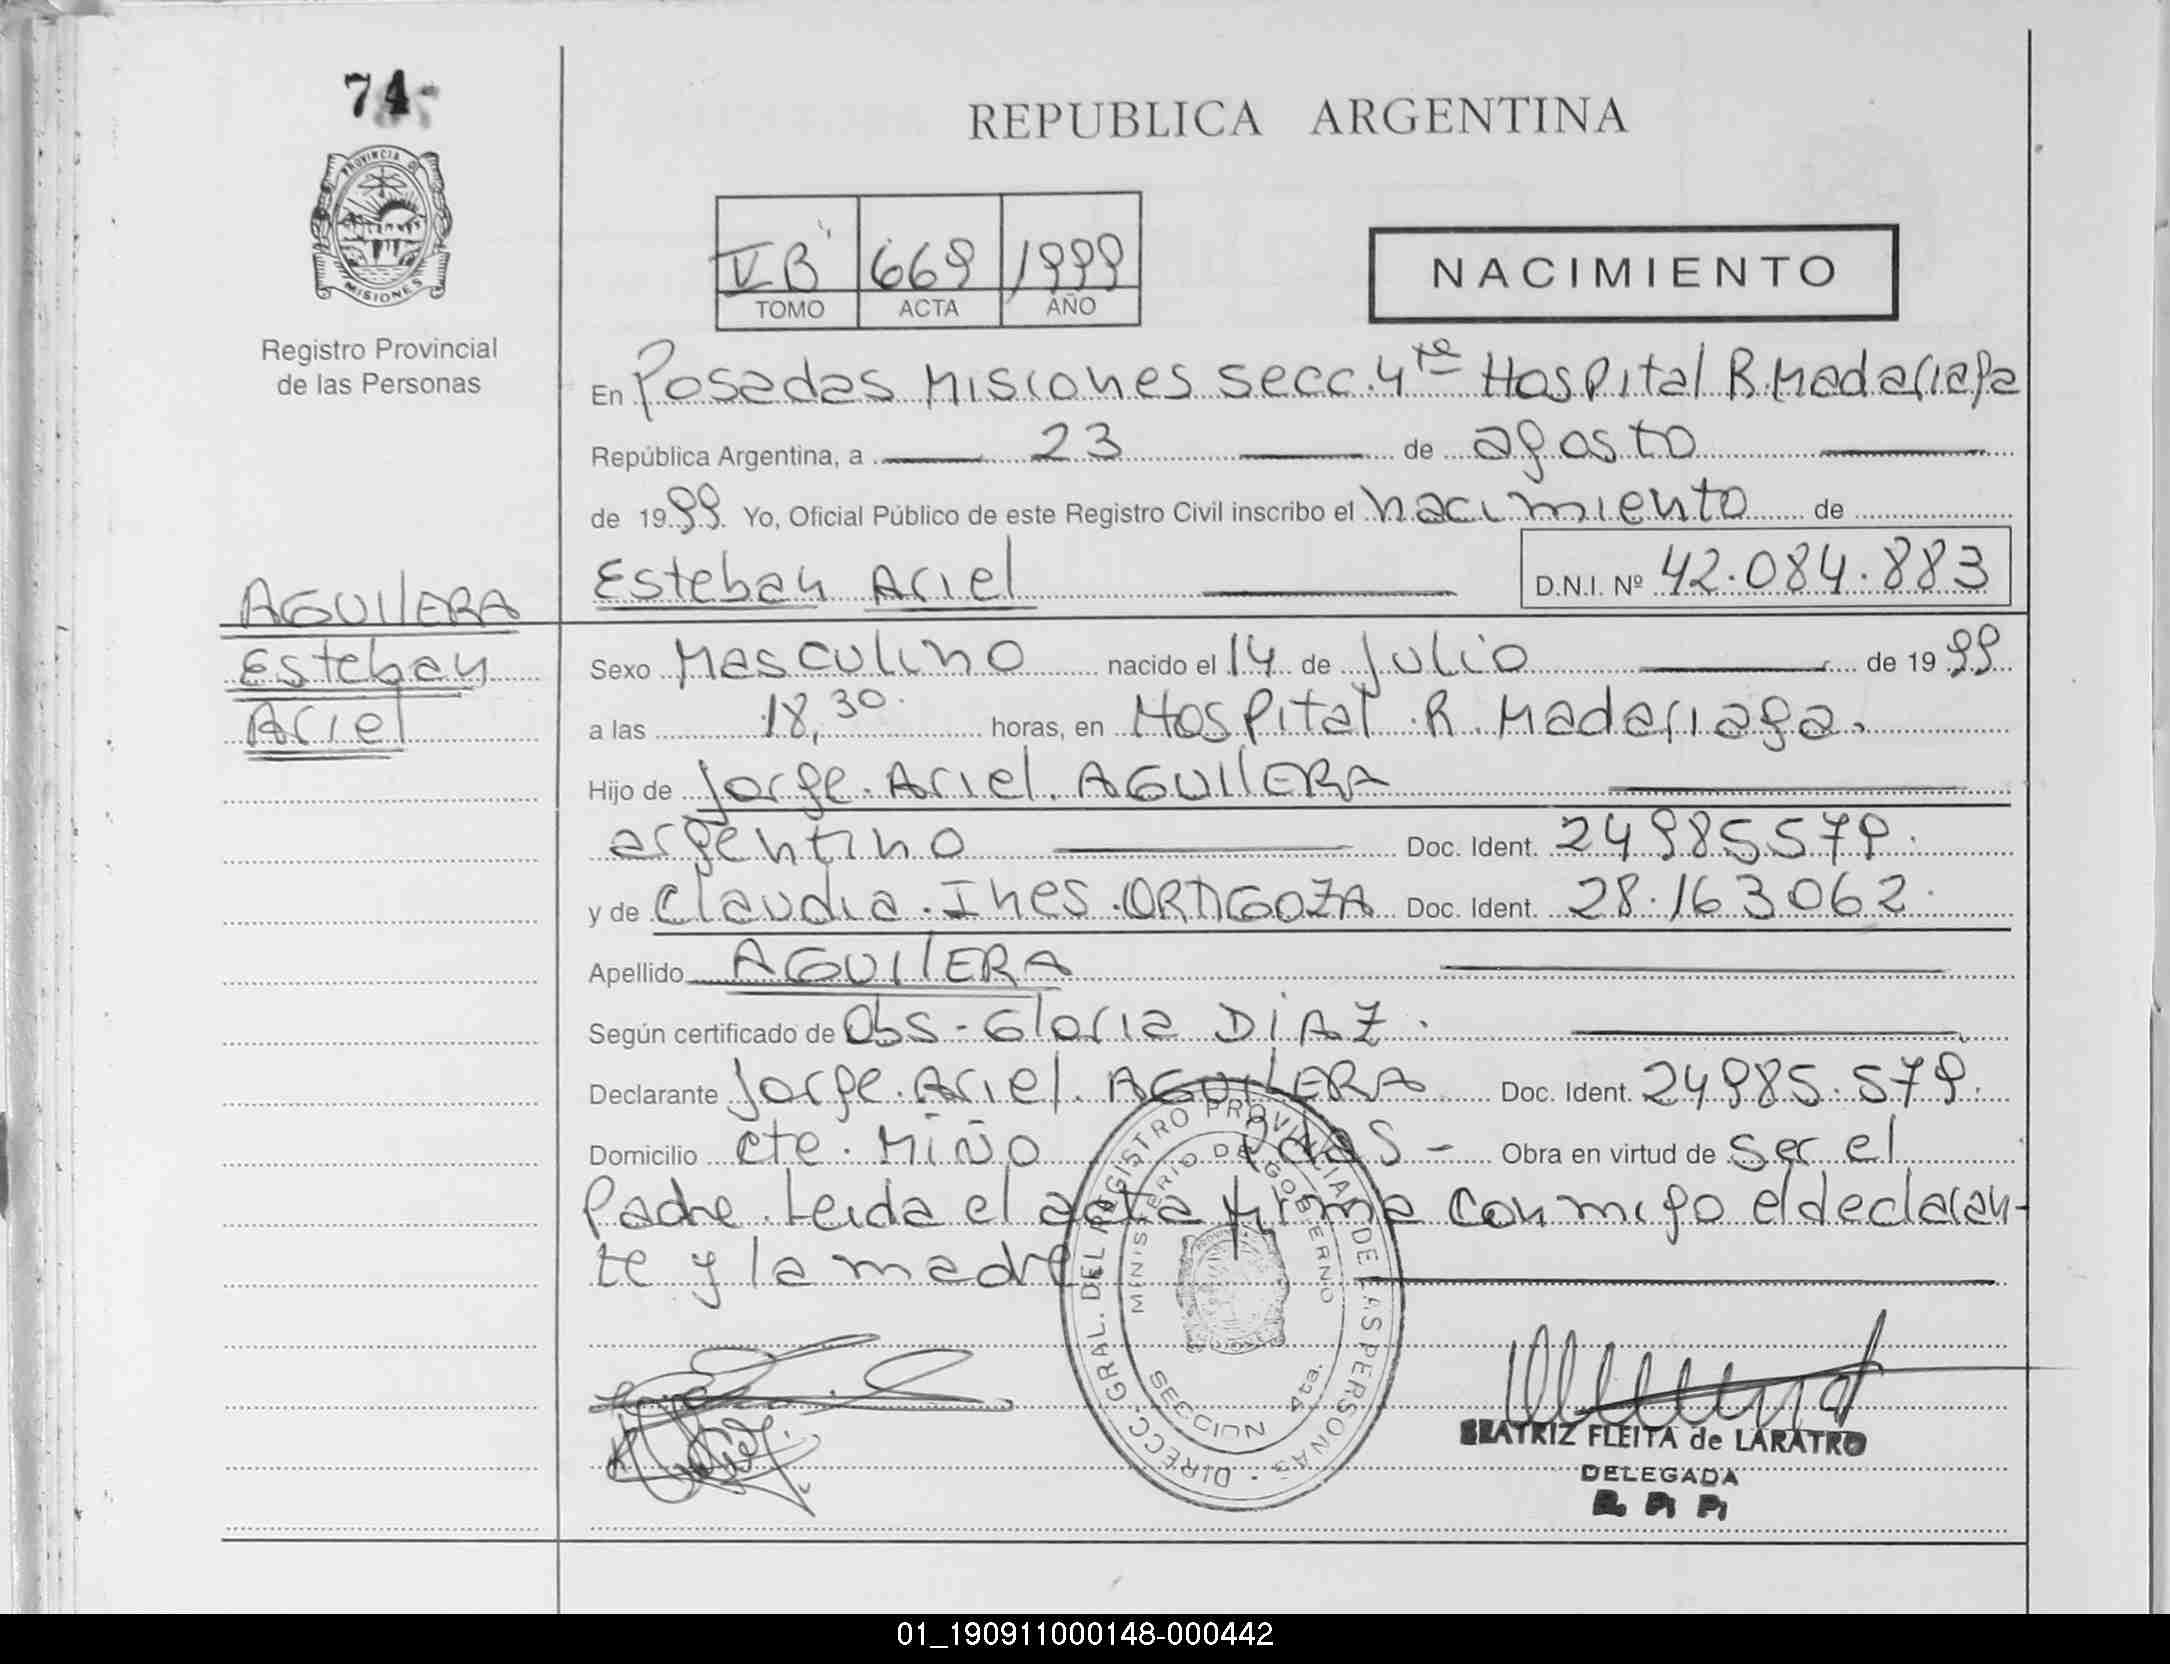 74
PROVINCIA D
MISIONES
Registro Provincial
de las Personas
REPUBLICA ARGENTINA
VB 669 1999
TOMO ACTA AÑO
NACIMIENTO
En Posadas Misiones secc. 4ta Hospital R. Madariaga
República Argentina, a 23 de agosto
de 1999 Yo, Oficial Público de este Registro Civil inscribo el nacimiento de
Esteban Ariel D.N.I. Nº 42.084.883
AGUILERA
Esteban
Ariel
Sexo Masculino nacido el 14 de julio de 1999
a las 18,30 horas, en Hospital R. Madariaga.
Hijo de Jorge Ariel AGUILERA
argentino Doc. Ident. 24985579.
y de Claudia Ines ORTIGOZA Doc. Ident. 28.163062.
Apellido AGUILERA
Según certificado de Obs - Gloria DIAZ.
Declarante Jorge Ariel AGUILERA Doc. Ident. 24985.579.
Domicilio cte. Miño Pdas - Obra en virtud de ser el
Padre. Leida el acta firma conmigo el declaran-
te y la madre
DIRECC. GRAL. DEL REGISTRO PROVINCIAL DE LAS PERSONAS
MINISTERIO DE GOBERNO
SECCION 4ta.
BEATRIZ FLEITA de LARATRO
DELEGADA
R. P. P.
01_190911000148-000442